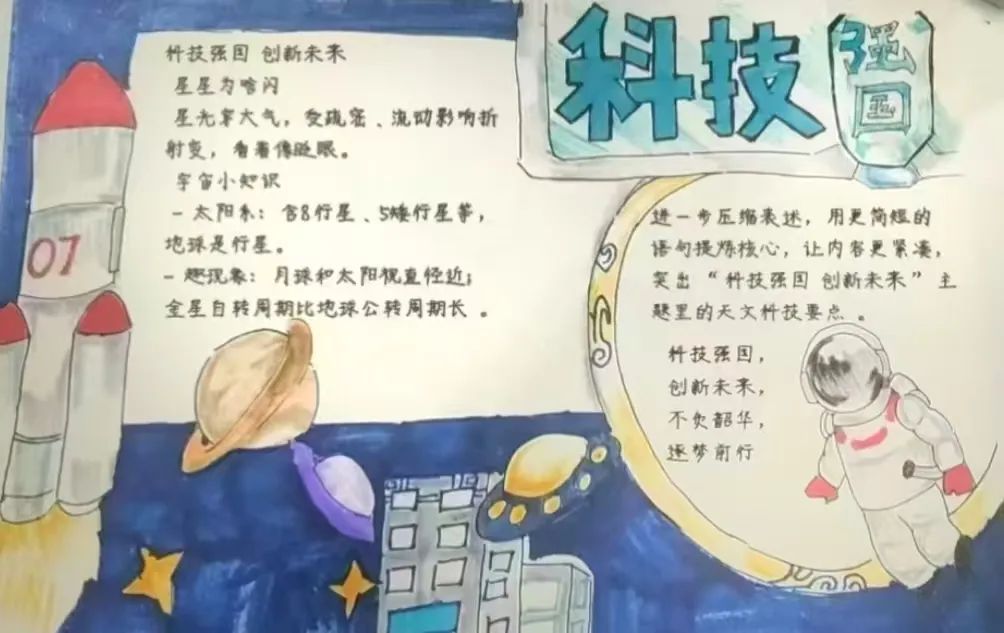 科技强国
科技强国 创新未来
星星为啥闪
星光穿大气，受疏密、流动影响折
射变，看着像眨眼。
宇宙小知识
- 太阳系：含8行星、5矮行星等，
地球是行星。
- 趣现象：月球和太阳视直径近；
金星自转周期比地球公转周期长 。
07
进一步压缩表述，用更简短的
语句提炼核心，让内容更紧凑，
突出“科技强国 创新未来”主
题里的天文科技要点 。
科技强国，
创新未来，
不负韶华，
逐梦前行